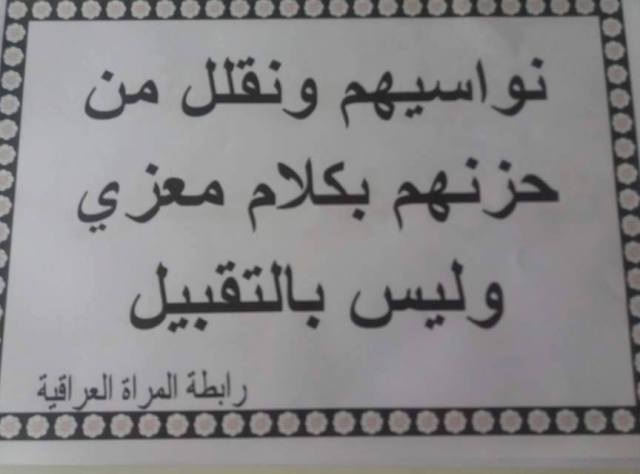 نواسيهم ونقلل من
حزنهم بكلام معزي
وليس بالتقبيل
رابطة المراة العراقية